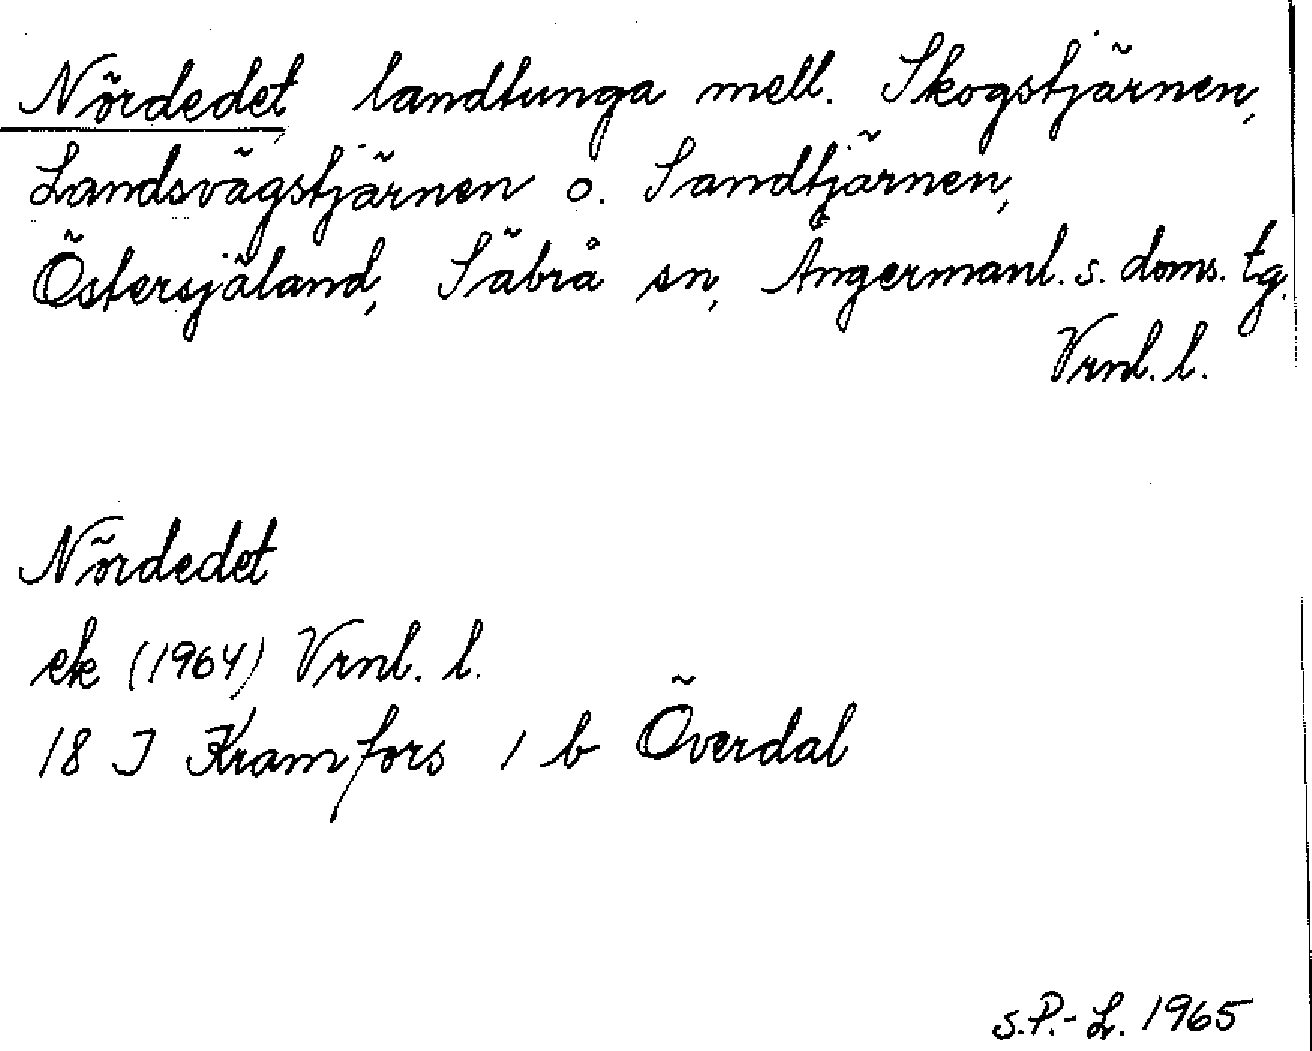 Nördedet landtunga mell. Skogstjärnen,
Landsvägstjärnen o. Sandtjärnen,
Östersjäland, Säbrå sn, Ångermanl. s. doms. tg.
Vrnl. l.
Nördedet
ek (1964) Vrnl. l.
18 I Kramfors 1 b Överdal
S.P.-L. 1965